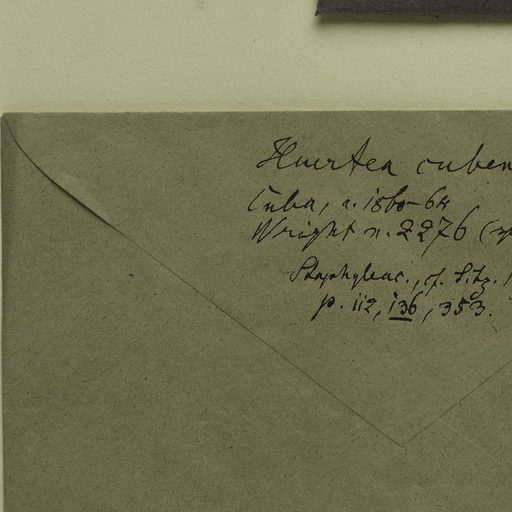 Huertea cuben
Cuba, a. 1860-64
Wright n. 2276 (
Staphyleac., cf. Sitz.
p. 112, 136, 353.